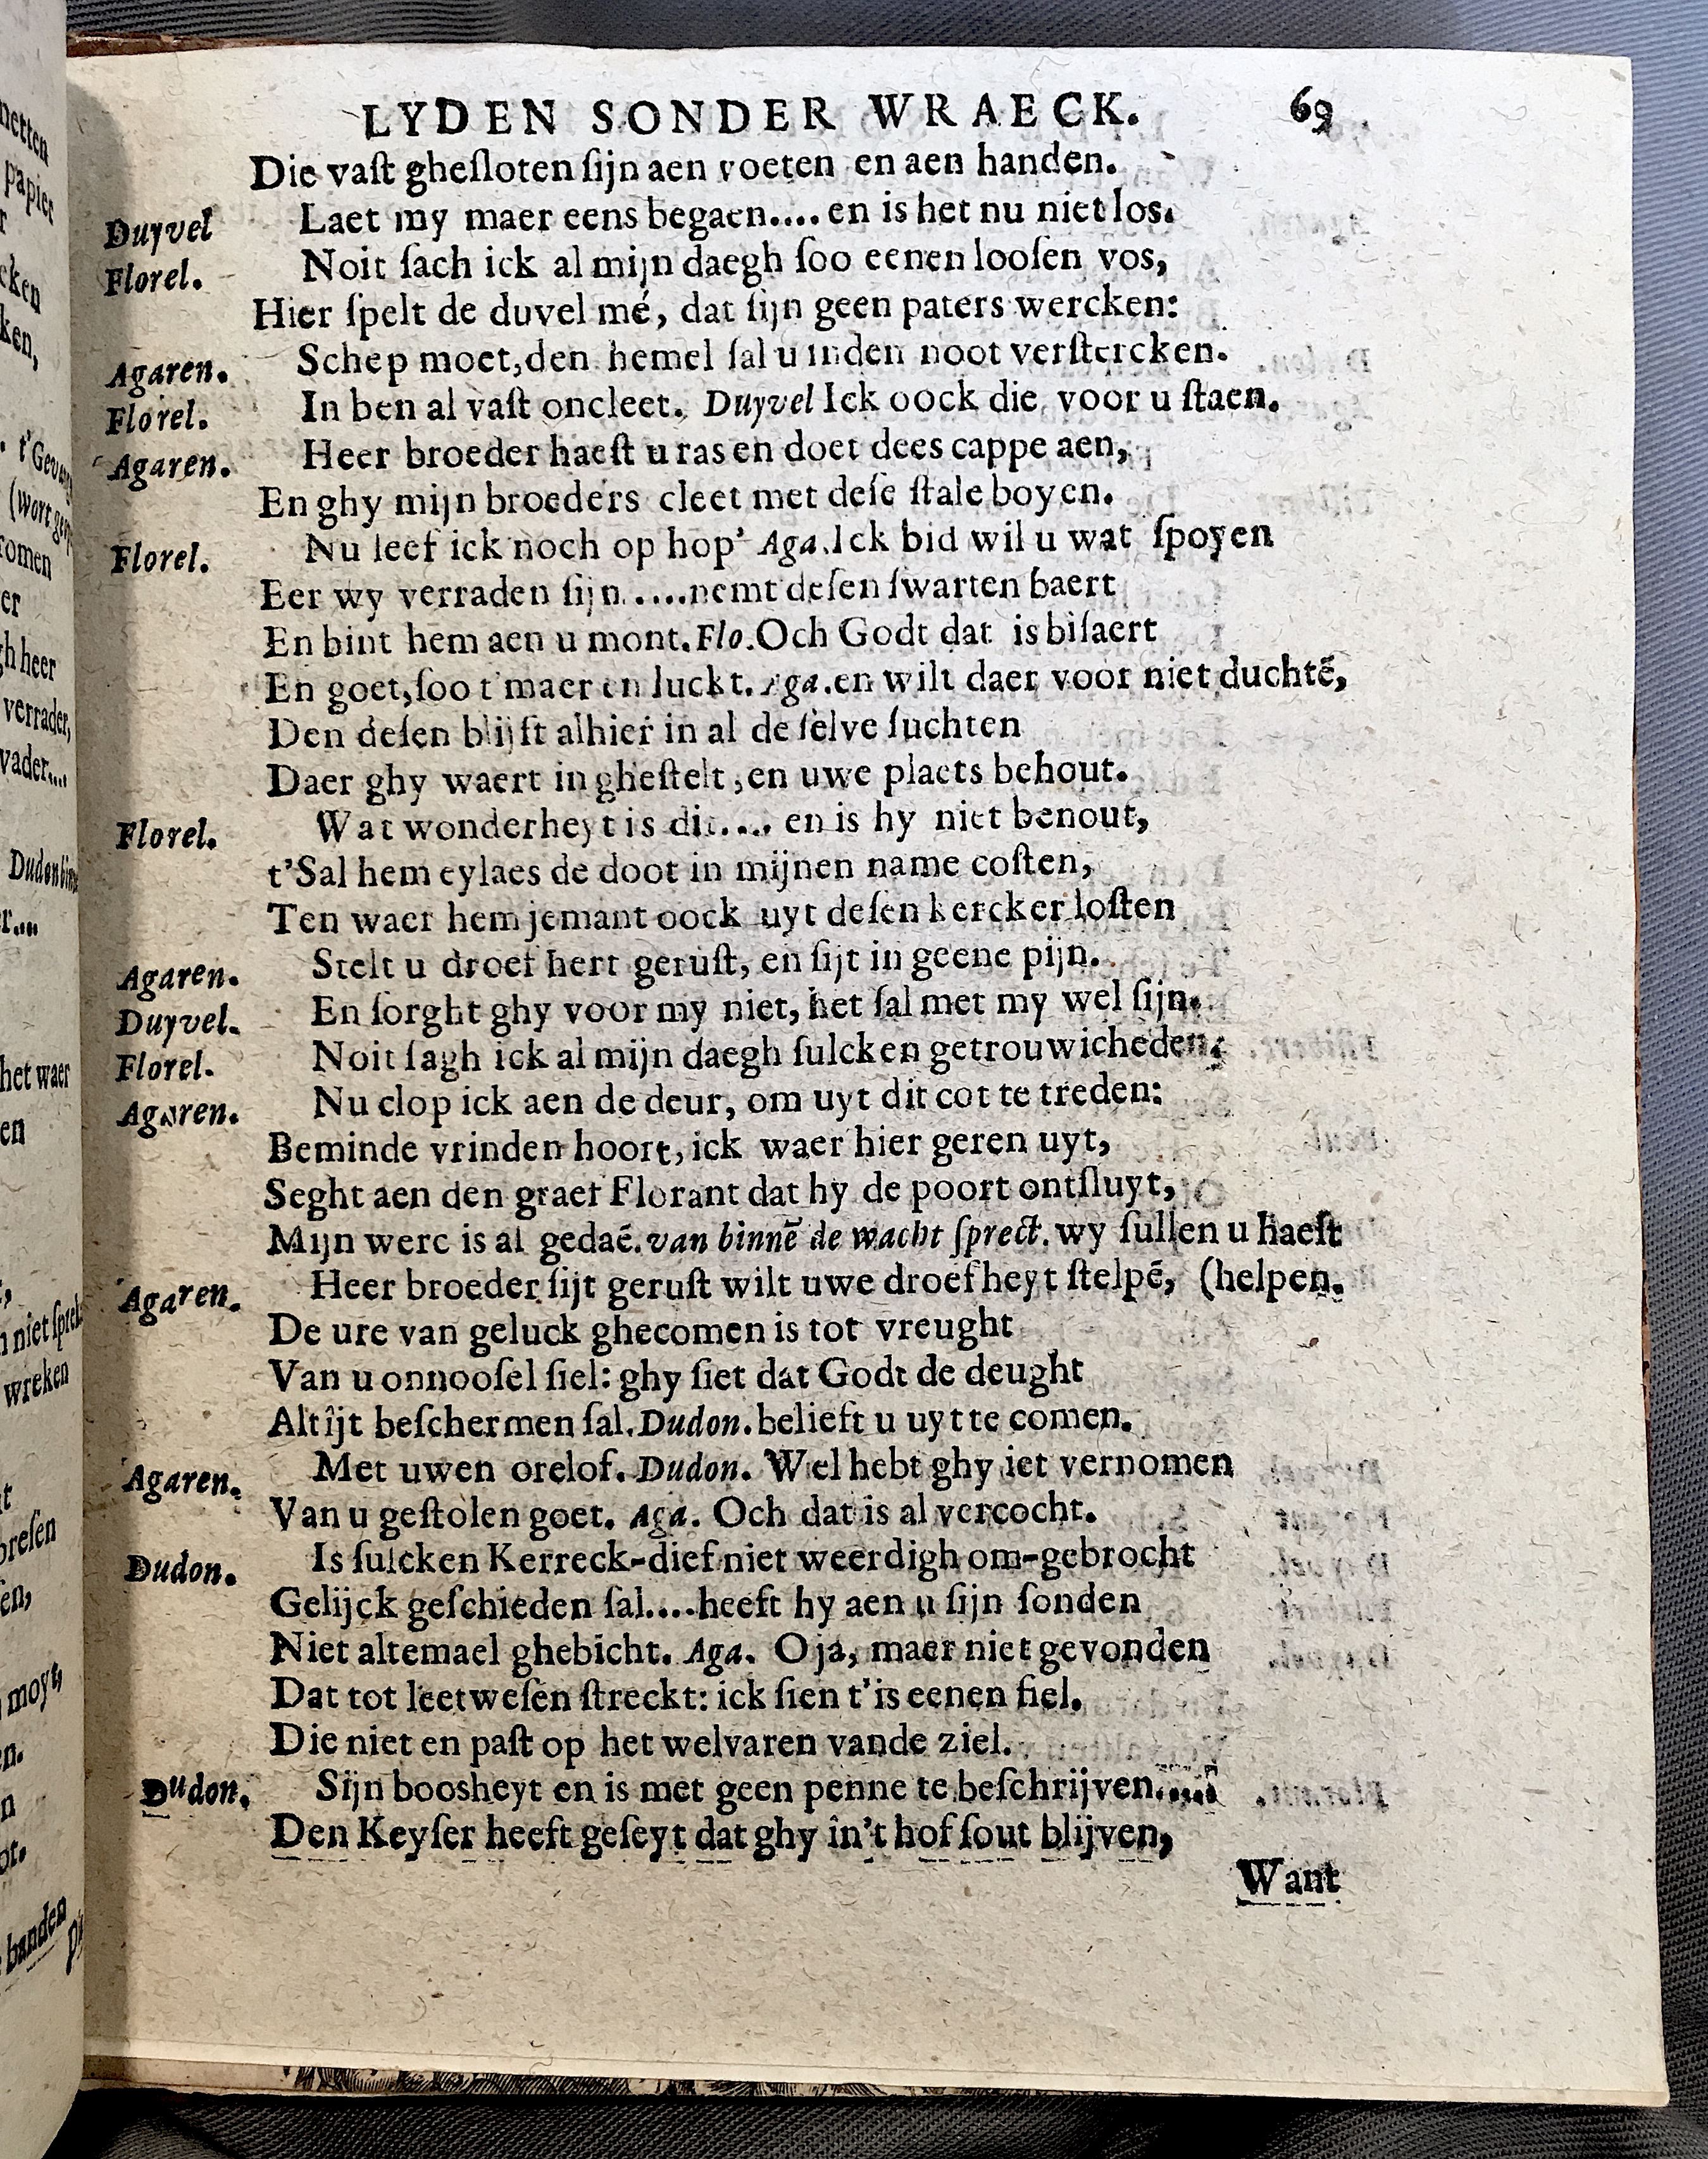 LYDEN SONDER WRAECK. 69
Die vaſt gheſloten ſijn aen voeten en aen handen.
Duyvel Laet my maer eens begaen.... en is het nu niet los.
Florel. Noit ſach ick al mijn daegh ſoo eenen looſen vos,
Hier ſpelt de duvel mé, dat ſijn geen paters wercken:
Agaren. Schep moet, den hemel ſal u inden noot verſtercken.
Florel. In ben al vaſt oncleet. Duyvel Ick oock die voor u ſtaen.
Agaren. Heer broeder haeſt u ras en doet dees cappe aen,
En ghy mijn broeders cleet met deſe ſtale boyen.
Florel. Nu leef ick noch op hop' Aga. Ick bid wil u wat ſpoyen
Eer wy verraden ſijn.....nemt deſen ſwarten baert
En bint hem aen u mont. Flo. Och Godt dat is biſaert
En goet, ſoo t'maer en luckt. Aga. en wilt daer voor niet duchtē,
Den deſen blijft alhier in al de ſelve ſuchten
Daer ghy waert in gheſtelt, en uwe plaets behout.
Florel. Wat wonderheyt is dit.... en is hy niet benout,
t'Sal hem eylaes de doot in mijnen name coſten,
Ten waer hem jemant oock uyt deſen kercker loſten
Agaren. Stelt u droef hert geruſt, en ſijt in geene pijn.
Duyvel. En ſorght ghy voor my niet, het ſal met my wel ſijn.
Florel. Noit ſagh ick al mijn daegh ſulcken getrouwicheden.
Agaren. Nu clop ick aen de deur, om uyt dit cot te treden:
Beminde vrinden hoort, ick waer hier geren uyt,
Seght aen den graef Florant dat hy de poort ontſluyt,
Mijn werc is al gedaē. van binnē de wacht ſprect. wy ſullen u haeſt
Agaren. Heer broeder ſijt geruſt wilt uwe droefheyt ſtelpē, (helpen.
De ure van geluck ghecomen is tot vreught
Van u onnooſel ſiel: ghy ſiet dat Godt de deught
Altîjt beſchermen ſal. Dudon. belieft u uyt te comen.
Agaren. Met uwen orelof. Dudon. Wel hebt ghy iet vernomen
Van u geſtolen goet. Aga. Och dat is al vercocht.
Dudon. Is ſulcken Kerreck-dief niet weerdigh om-gebrocht
Gelijck geſchieden ſal....heeft hy aen u ſijn ſonden
Niet altemael ghebicht. Aga. O ja, maer niet gevonden
Dat tot leetweſen ſtreckt: ick ſien t'is eenen fiel.
Die niet en paſt op het welvaren vande ziel.
Dudon. Sijn boosheyt en is met geen penne te beſchrijven.....
Den Keyſer heeft geſeyt dat ghy în't hof ſout blijven,
Want